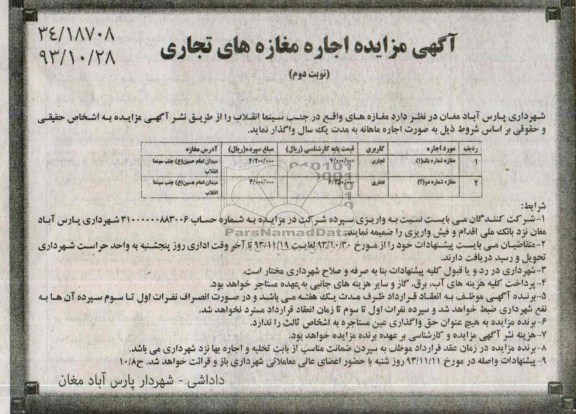 ۳۴/۱۸۷۰۸
۹۳/۱۰/۲۸
آگهی مزایده اجاره مغازه های تجاری
(نوبت دوم)
شهرداری پارس آباد مغان در نظر دارد مغازه های واقع در جنب سینما انقلاب را از طریق نشر آگهی مزایده به اشخاص حقیقی
و حقوقی بر اساس شروط ذیل به صورت اجاره ماهانه به مدت یک سال واگذار نماید.
ردیف مورد اجاره کاربری قیمت پایه کارشناسی (ریال) مبلغ سپرده(ریال) آدرس مغازه
۱ مغازه شماره یک(۱) تجاری میدان امام حسین(ع) جنب سینما
انقلاب
۲ مغازه شماره دو(۲) تجاری میدان امام حسین(ع) جنب سینما
انقلاب
شرایط:
۱-شرکت کنندگان می بایست نسبت به واریزی سپرده شرکت در مزایده به شماره حساب ۳۱۰۰۰۰۰۰۸۸۳۰۰۶ شهرداری پارس آباد
مغان نزد بانک ملی اقدام و فیش واریزی را ضمیمه نمایند.
۲-متقاضیان می بایست پیشنهادات خود را از مورخ ۹۳/۱۰/۳۰ لغایت ۹۳/۱۱/۱۹ تا آخر وقت اداری روز پنجشنبه به واحد حراست شهرداری
تحویل و رسید دریافت دارند.
۳-شهرداری در رد و یا قبول کلیه پیشنهادات بنا به صرفه و صلاح شهرداری مختار است.
۴-پرداخت کلیه هزینه های آب، برق، گاز و سایر هزینه های جانبی به عهده مستاجر خواهد بود.
۵-برنده آگهی موظف به انعقاد قرارداد ظرف مدت یک هفته می باشد و در صورت انصراف نفرات اول تا سوم سپرده آن ها به
نفع شهرداری ضبط خواهد شد و سپرده نفرات اول تا سوم تا زمان انعقاد قرارداد مسترد نخواهد شد.
۶-برنده مزایده به هیچ عنوان حق واگذاری عین مستاجره به اشخاص ثالث را ندارد.
۷-هزینه نشر آگهی مزایده و کارشناسی بر عهده برنده مزایده خواهد بود.
۸-برنده مزایده در زمان عقد قرارداد موظف به سپردن ضمانت مناسب از بابت تخلیه و اجاره بها نزد شهرداری می باشد.
۹-پیشنهادات واصله در مورخ ۹۳/۱۱/۱۱ روز شنبه با حضور اعضای عالی معاملاتی شهرداری باز و قرائت خواهد شد. ح۱۰/۸
داداشی - شهردار پارس آباد مغان
ParsNamadData